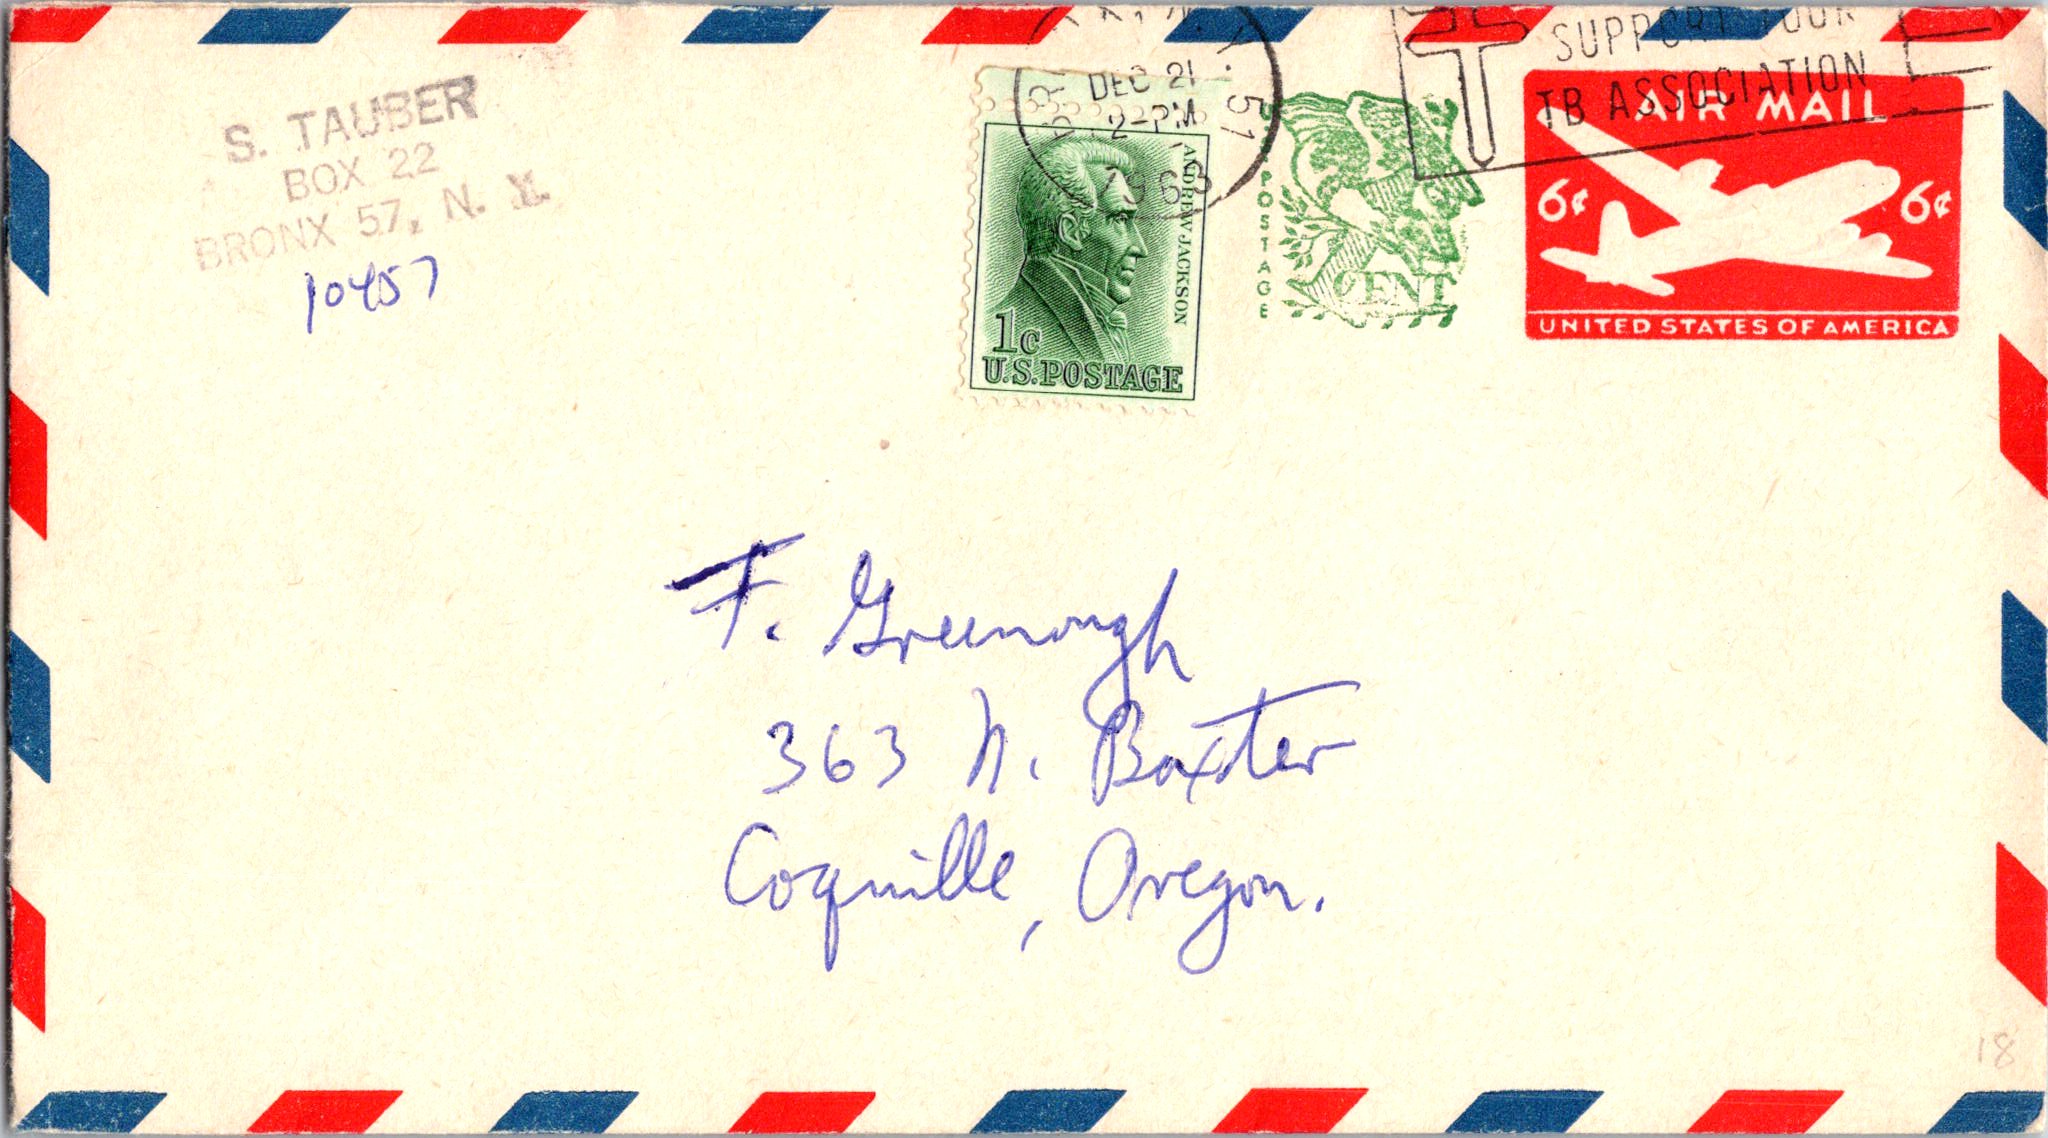 S. TAUBER
BOX 22
BRONX 57, N. Y.
10457
N. Y. 57
DEC 21
2-PM
1963
ANDREW JACKSON
1c
U.S. POSTAGE
POSTAGE
CENT
SUPPORT YOUR
TB ASSOCIATION
AIR MAIL
6¢ 6¢
UNITED STATES OF AMERICA
F. Greenough
363 N. Baxter
Coquille, Oregon.
18